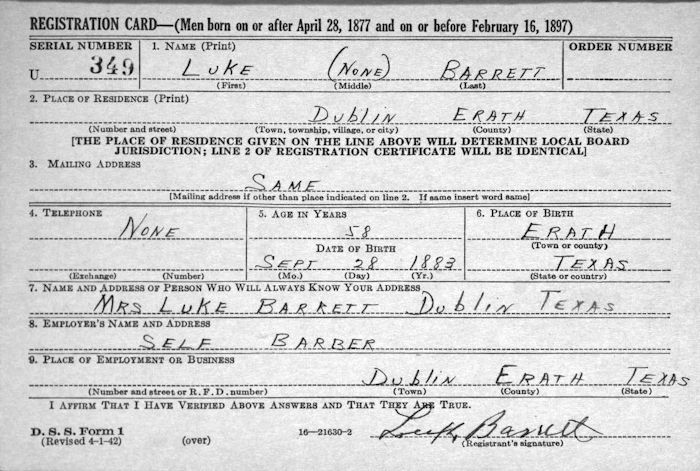 REGISTRATION CARD—(Men born on or after April 28, 1877 and on or before February 16, 1897)
SERIAL NUMBER 1. NAME (Print) ORDER NUMBER
U 349 LUKE (NONE) BARRETT
(First) (Middle) (Last)
2. PLACE OF RESIDENCE (Print)
DUBLIN ERATH TEXAS
(Number and street) (Town, township, village, or city) (County) (State)
[THE PLACE OF RESIDENCE GIVEN ON THE LINE ABOVE WILL DETERMINE LOCAL BOARD
JURISDICTION; LINE 2 OF REGISTRATION CERTIFICATE WILL BE IDENTICAL]
3. MAILING ADDRESS
SAME
[Mailing address if other than place indicated on line 2. If same insert word same]
4. TELEPHONE 5. AGE IN YEARS 6. PLACE OF BIRTH
NONE 58 ERATH
DATE OF BIRTH (Town or county)
SEPT 28 1883 TEXAS
(Exchange) (Number) (Mo.) (Day) (Yr.) (State or country)
7. NAME AND ADDRESS OF PERSON WHO WILL ALWAYS KNOW YOUR ADDRESS
MRS LUKE BARRETT DUBLIN TEXAS
8. EMPLOYER'S NAME AND ADDRESS
SELF BARBER
9. PLACE OF EMPLOYMENT OR BUSINESS
DUBLIN ERATH TEXAS
(Number and street or R. F. D. number) (Town) (County) (State)
I AFFIRM THAT I HAVE VERIFIED ABOVE ANSWERS AND THAT THEY ARE TRUE.
D. S. S. Form 1
(Revised 4-1-42) (over) 16—21630-2 Luke Barrett
(Registrant's signature)